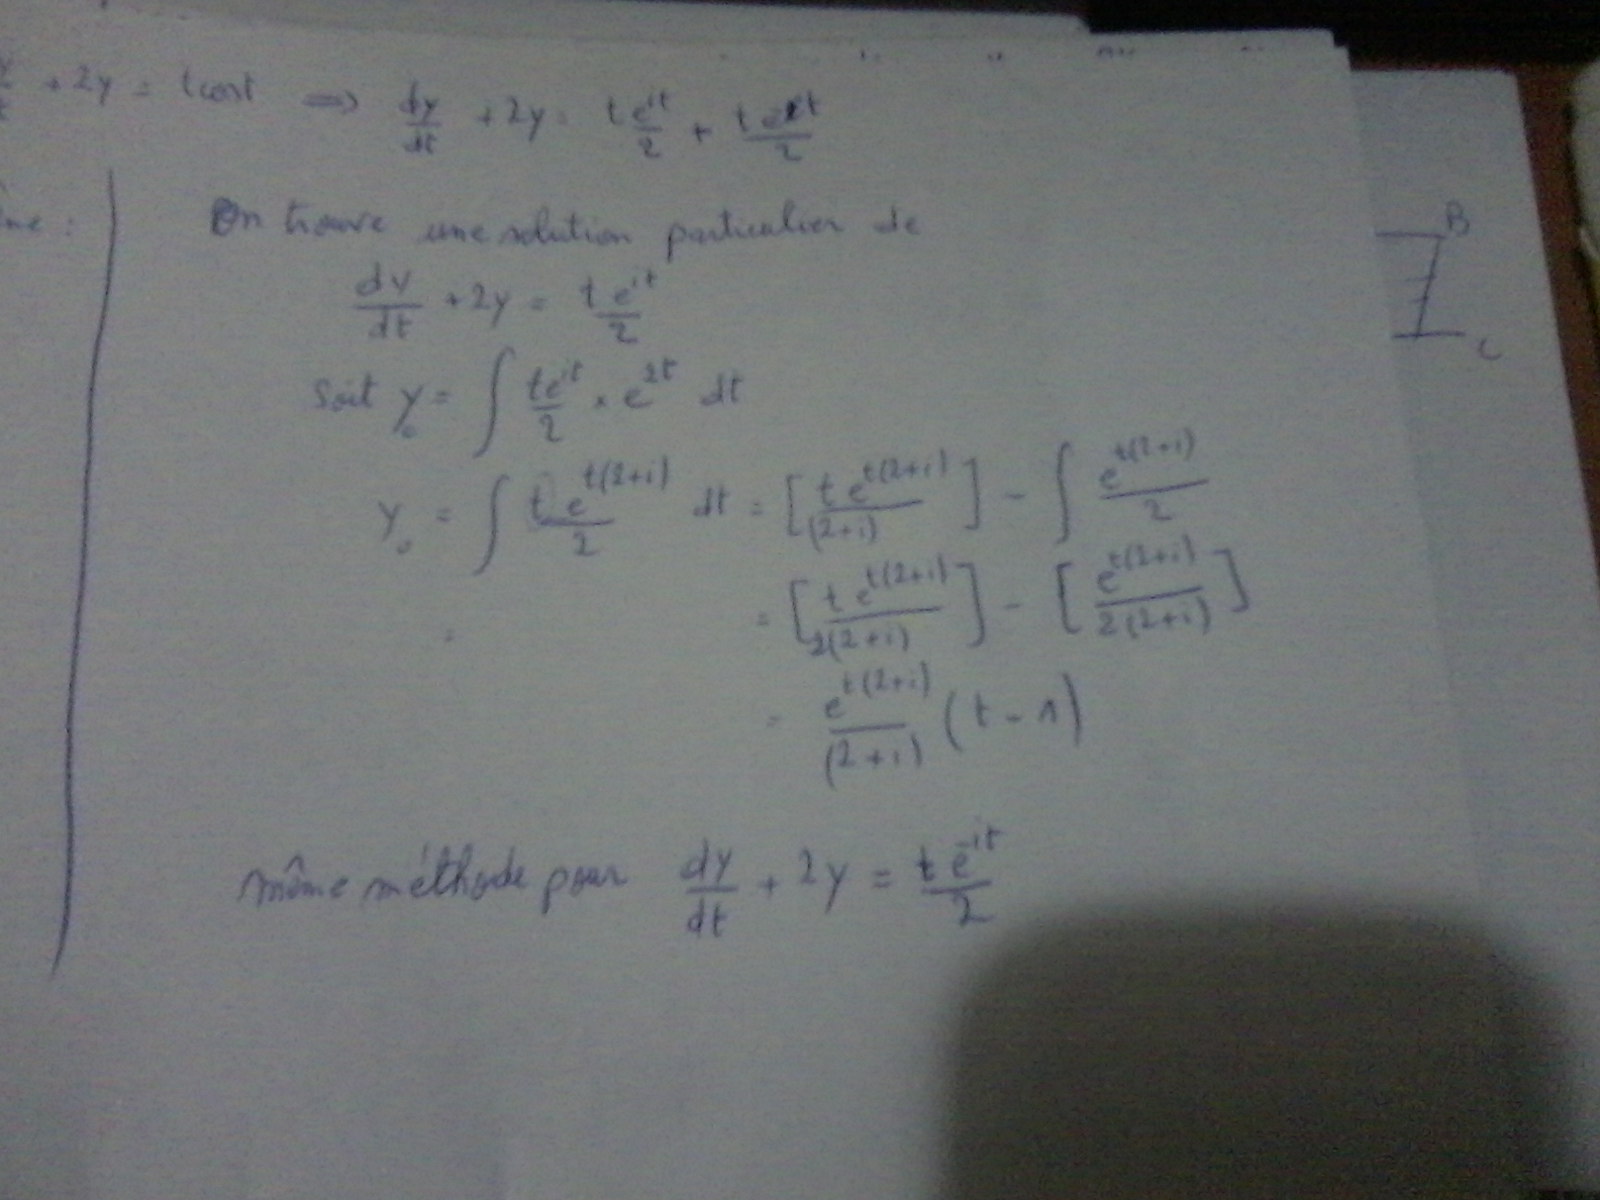 + 2y = t cost ⟹ dy/dt + 2y = t e^{it}/2 + t e^{-it}/2
On trouve une solution particulier de
dy/dt + 2y = t e^{it}/2
Soit y₀ = ∫ te^{it}/2 × e^{2t} dt
y₀ = ∫ t e^{t(2+i)}/2 dt = [t e^{t(2+i)}/(2+i)] - ∫ e^{t(2+i)}/2
= [t e^{t(2+i)}/2(2+i)] - [e^{t(2+i)}/2(2+i)]
= e^{t(2+i)}/(2+i) (t - 1)
même méthode pour dy/dt + 2y = t e^{-it}/2
B
C